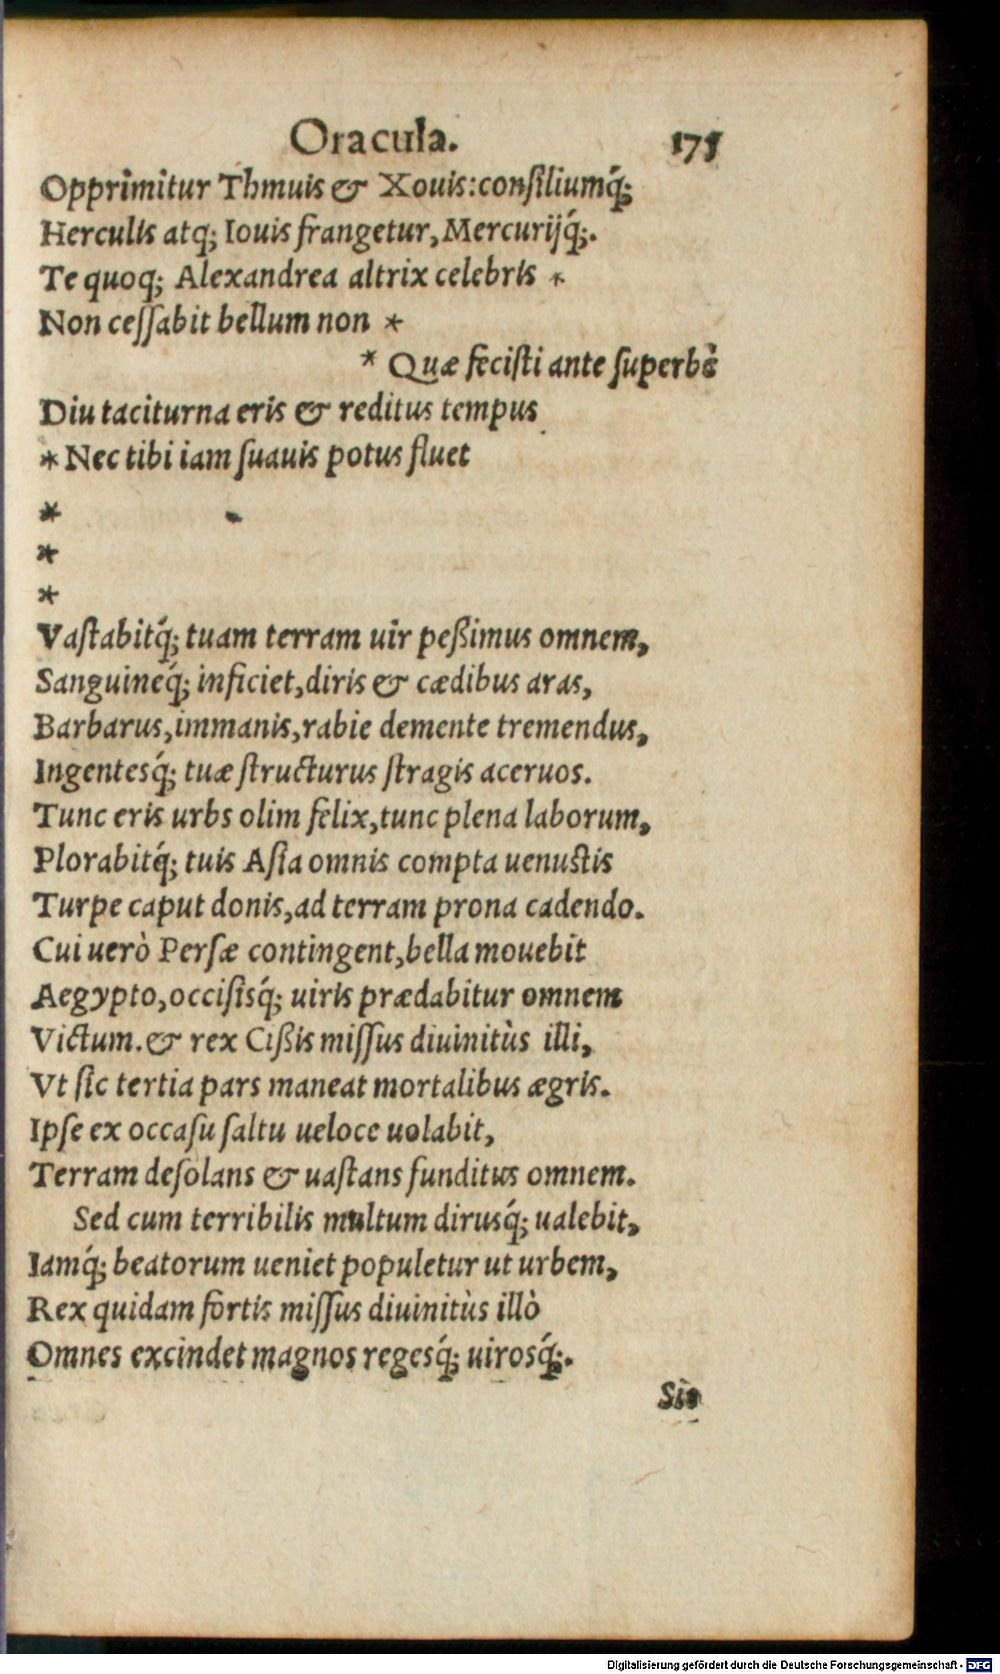 Oracula. 175
Opprimitur Thmuis & Xouis: consiliumq́;
Herculis atq; Iouis frangetur, Mercurijq́;.
Te quoq; Alexandrea altrix celebris *
Non cessabit bellum non *
* Quæ fecisti ante superbè
Diu taciturna eris & reditus tempus
* Nec tibi iam suauis potus fluet
*
*
*
Vastabitq́; tuam terram uir peßimus omnem,
Sanguineq́; inficiet, diris & cædibus aras,
Barbarus, immanis, rabie demente tremendus,
Ingentesq́; tuæ structurus stragis aceruos.
Tunc eris urbs olim felix, tunc plena laborum,
Plorabitq́; tuis Asia omnis compta uenustis
Turpe caput donis, ad terram prona cadendo.
Cui uerò Persæ contingent, bella mouebit
Aegypto, occisisq́; uiris prædabitur omnem
Victum. & rex Cißis missus diuinitùs illi,
Vt sic tertia pars maneat mortalibus ægris.
Ipse ex occasu saltu ueloce uolabit,
Terram desolans & uastans funditus omnem.
Sed cum terribilis multum dirusq́; ualebit,
Iamq́; beatorum ueniet populetur ut urbem,
Rex quidam fortis missus diuinitùs illò
Omnes excindet magnos regesq́; uirosq́;.
Sic
Digitalisierung gefördert durch die Deutsche Forschungsgemeinschaft - DFG